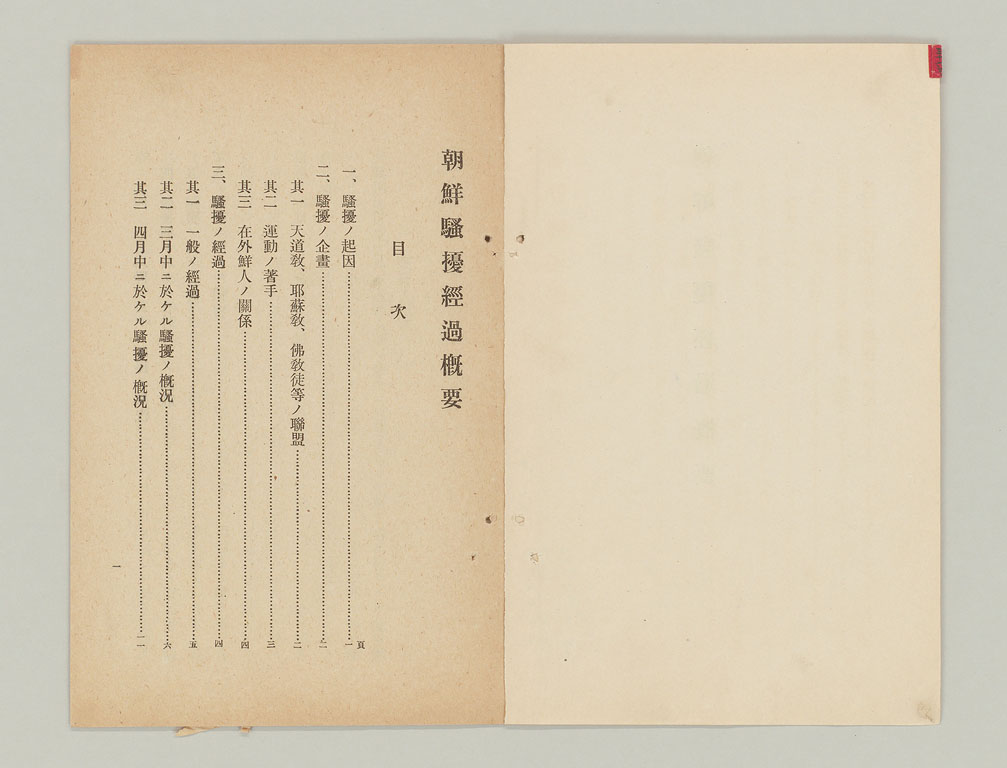 朝鮮騷擾經過槪要
目次
一、騷擾ノ起因……一頁
二、騷擾ノ企畫……二
其一 天道敎、耶蘇敎、佛敎徒等ノ聯盟……二
其二 運動ノ著手……三
其三 在外鮮人ノ關係……四
三、騷擾ノ經過……四
其一 一般ノ經過……五
其二 三月中ニ於ケル騷擾ノ槪況……六
其三 四月中ニ於ケル騷擾ノ槪況……一一
一